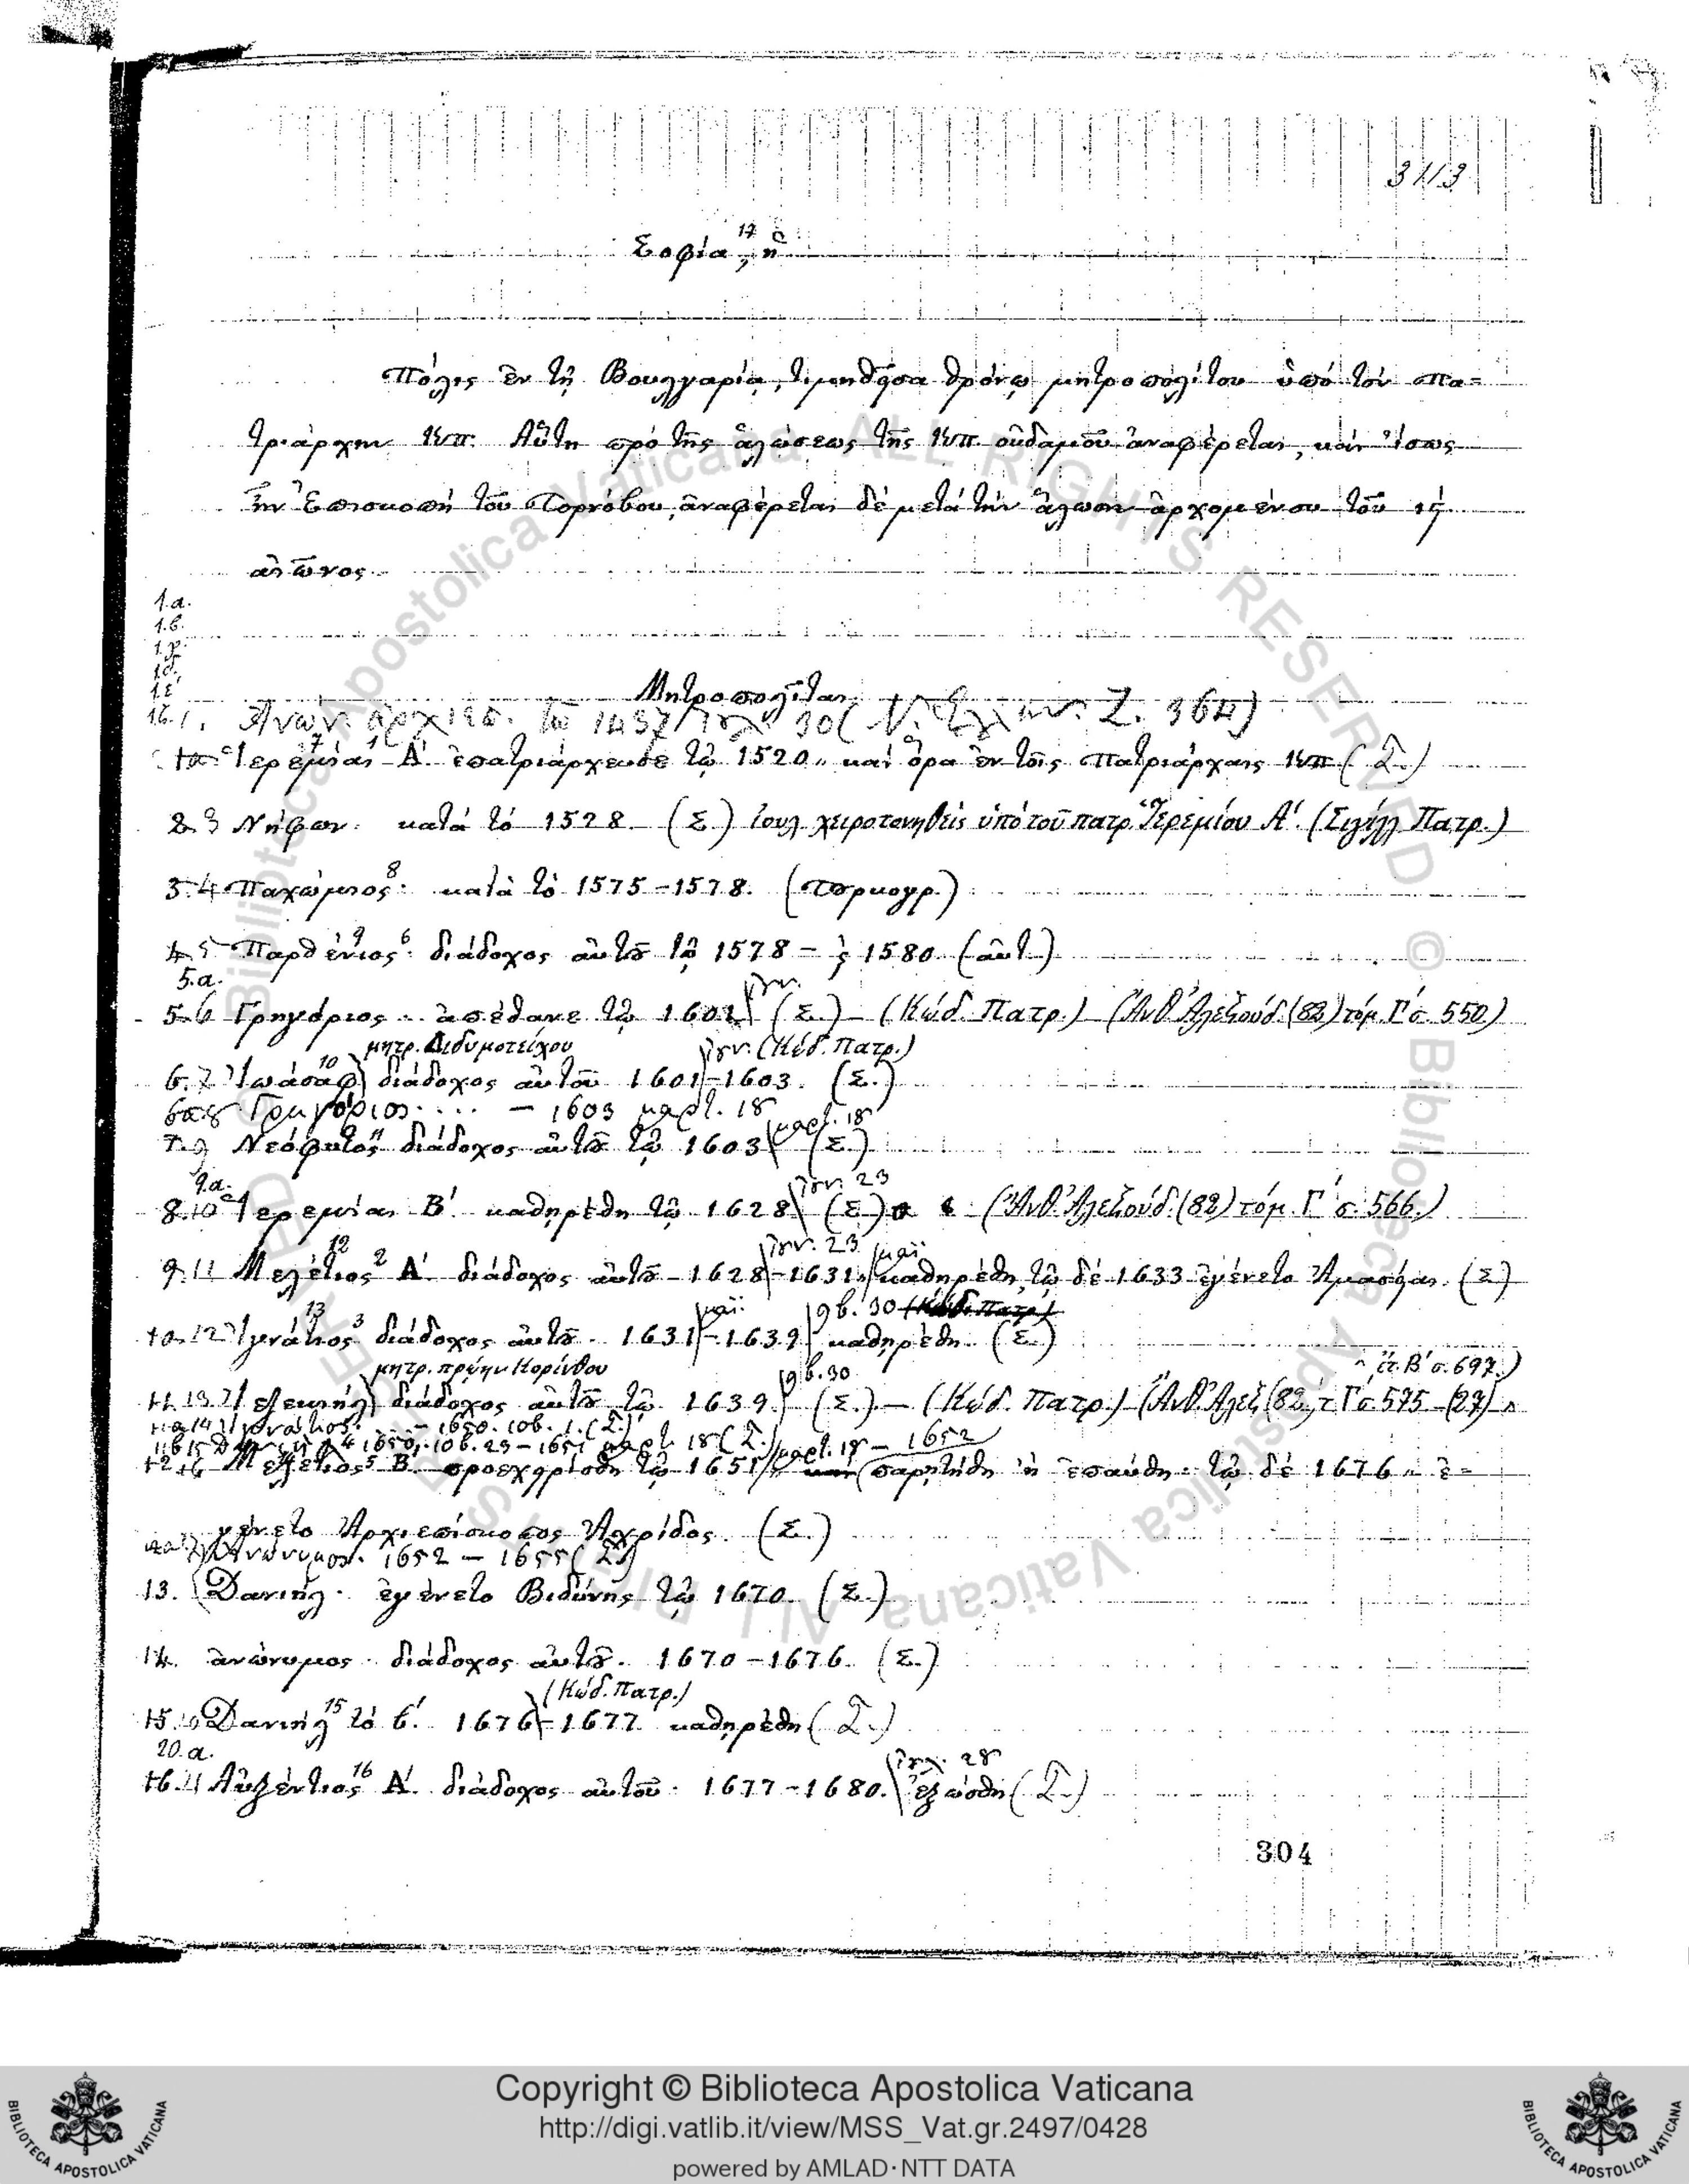 3113
Σοφία, ἡ 17
Πόλις ἐν τῇ Βουλγαρίᾳ, τιμηθεῖσα θρόνῳ μητροπολίτου ὑπό τόν Πα=
τριάρχην Κπ. Αὕτη πρό τῆς ἁλώσεως τῆς Κπ οὐδαμοῦ ἀναφέρεται, κἄν ἴσως
ἦν Ἐπισκοπή τοῦ Τορνόβου, ἀναφέρεται δέ μετά τήν ἅλωσιν ἀρχομένου τοῦ ιϛ́
αἰῶνος.
1.α.
1.β.
1.γ.
1.δ.
1.ε
Μητροπολῖται
1. Ἀνών. τῷ 1437 30 ( 2. 364)
Ἱερεμίας 7 1 Α΄. ἐπατριάρχευσε τῷ 1520 „ καί ὅρα ἐν τοῖς Πατριάρχαις Κπ (Σ.)
2. 3 Νήφων. κατά τό 1528. (Σ.) Ἰουλ χειροτονηθείς ὑπό τοῦ πατρ. Ἱερεμίου Α΄. (Σιγίλλ Πατρ.)
3. 4 Παχώμιος 8. κατά τό 1575-1578. (Τορκογρ.)
4. 5 Παρθένιος 9 6. διάδοχος αὐτοῦ τῷ 1578 - ϛ 1580. (αὐτ.)
5.α.
5. 6 Γρηγόριος. ἀπέθανε τῷ 1601 Ἰαν. (Σ.) - (Κώδ. Πατρ.) (Ἀνθ. Ἀλεξούδ. (82) τόμ. Γ΄ σ. 550)
μητρ. Διδυμοτείχου Ἰαν. (Κώδ. Πατρ.)
6. 7 Ἰωάσαφ 10 διάδοχος αὐτοῦ 1601-1603. (Σ.)
6α 8 Γρηγόριος.... - 1603 μαρτ. 18
7. 9 Νεόφυτος 11 διάδοχος αὐτοῦ τῷ 1603 μαρτ. 18 (Σ.)
9.α.
8. 10 Ἱερεμίας Β΄. καθῃρέθη τῷ 1628 Ἰαν. 23 (Σ.) (Ἀνθ. Ἀλεξούδ. (82) τόμ. Γ΄ σ. 566.)
9. 11 Μελέτιος 12 2 Α΄. διάδοχος αὐτοῦ - 1628 Ἰαν. 23 -1631 μαΐ. καθῃρέθη, τῷ δέ 1633 ἐγένετο Ἀμασείας. (Σ)
10. 12 Ἰγνάτιος 13 3 διάδοχος αὐτοῦ. 1631 μαΐ. -1639 9β. 30 (Κώδ. Πατρ.) καθῃρέθη. (Σ.)
μητρ. πρώην Κορίνθου 9β. 30 ἔτ. Β΄ σ. 697.)
11. 13 διάδοχος αὐτοῦ τῷ 1639. (Σ.) - (Κώδ. Πατρ.) (Ἀνθ. Ἀλεξ (82, τ. Γ΄ σ. 575 - (27)
11α 14 Ἰγνάτιος. - 1650. 10β. 1. (Σ.)
11β 15 4 1650, 10β. 23 - 1651 μαρτ. 18 (Σ.)
12. 16 Μελέτιος 5 Β΄. προεχειρίσθη τῷ 1651 μαρτ. 18 - 1652 παρῃτήθη ἤ ἐπαύθη. τῷ δέ 1676 „ ἐ=
γένετο Ἀρχιεπίσκοπος Ἀχρίδος. (Σ.)
Ἀνώνυμος. 1652 - 1655 (Σ.)
13. Δανιήλ. ἐγένετο Βιδύνης τῷ 1670. (Σ.)
14. ἀνώνυμος. διάδοχος αὐτοῦ. 1670-1676. (Σ.)
(Κώδ. Πατρ.)
15. Δανιήλ 15 τό β΄. 1676-1677 καθῃρέθη (Σ.)
20.α.
16. Αὐξέντιος 16 Α΄. διάδοχος αὐτοῦ. 1677-1680. Ἰουλ. 28 ἐξώσθη (Σ.)
304
© Biblioteca Apostolica Vaticana ALL RIGHTS RESERVED
Copyright © Biblioteca Apostolica Vaticana
http://digi.vatlib.it/view/MSS_Vat.gr.2497/0428
powered by AMLAD·NTT DATA
BIBLIOTECA APOSTOLICA VATICANA
BIBLIOTECA APOSTOLICA VATICANA